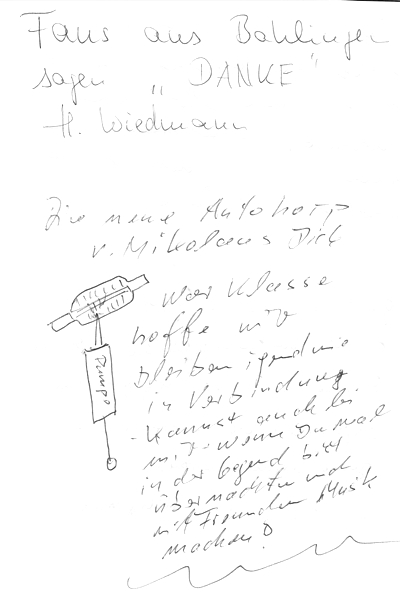 Fans aus Bahlingen
sagen „DANKE"
H. Wiedmann
Die neue Autoharp
v. Nikolaus Dick
war Klasse
hoffe wir
bleiben igendwie
in Verbindung
- kannst auch bei
mir - wenn Du mal
in der Gegend bist
übernachten und
mit Freunden Musik
machen
Pumpe